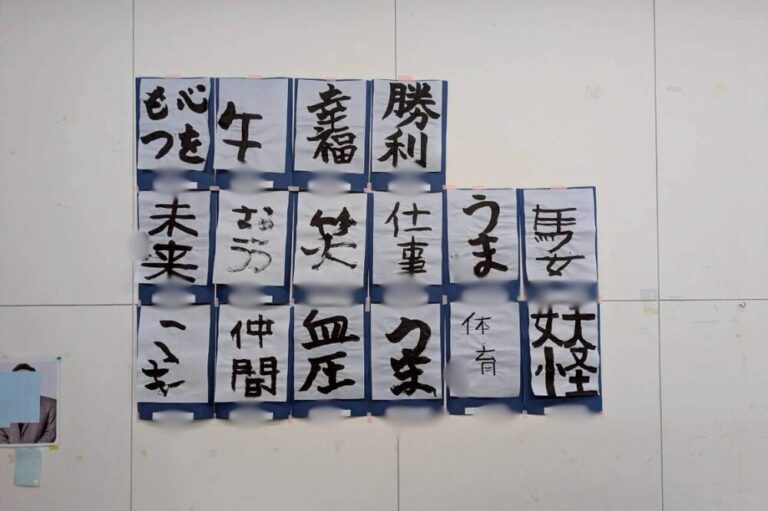 心を
もつ
午
幸福
勝利
未来
笑
仕事
うま
馬女
仲間
血圧
うま
体育
妖怪